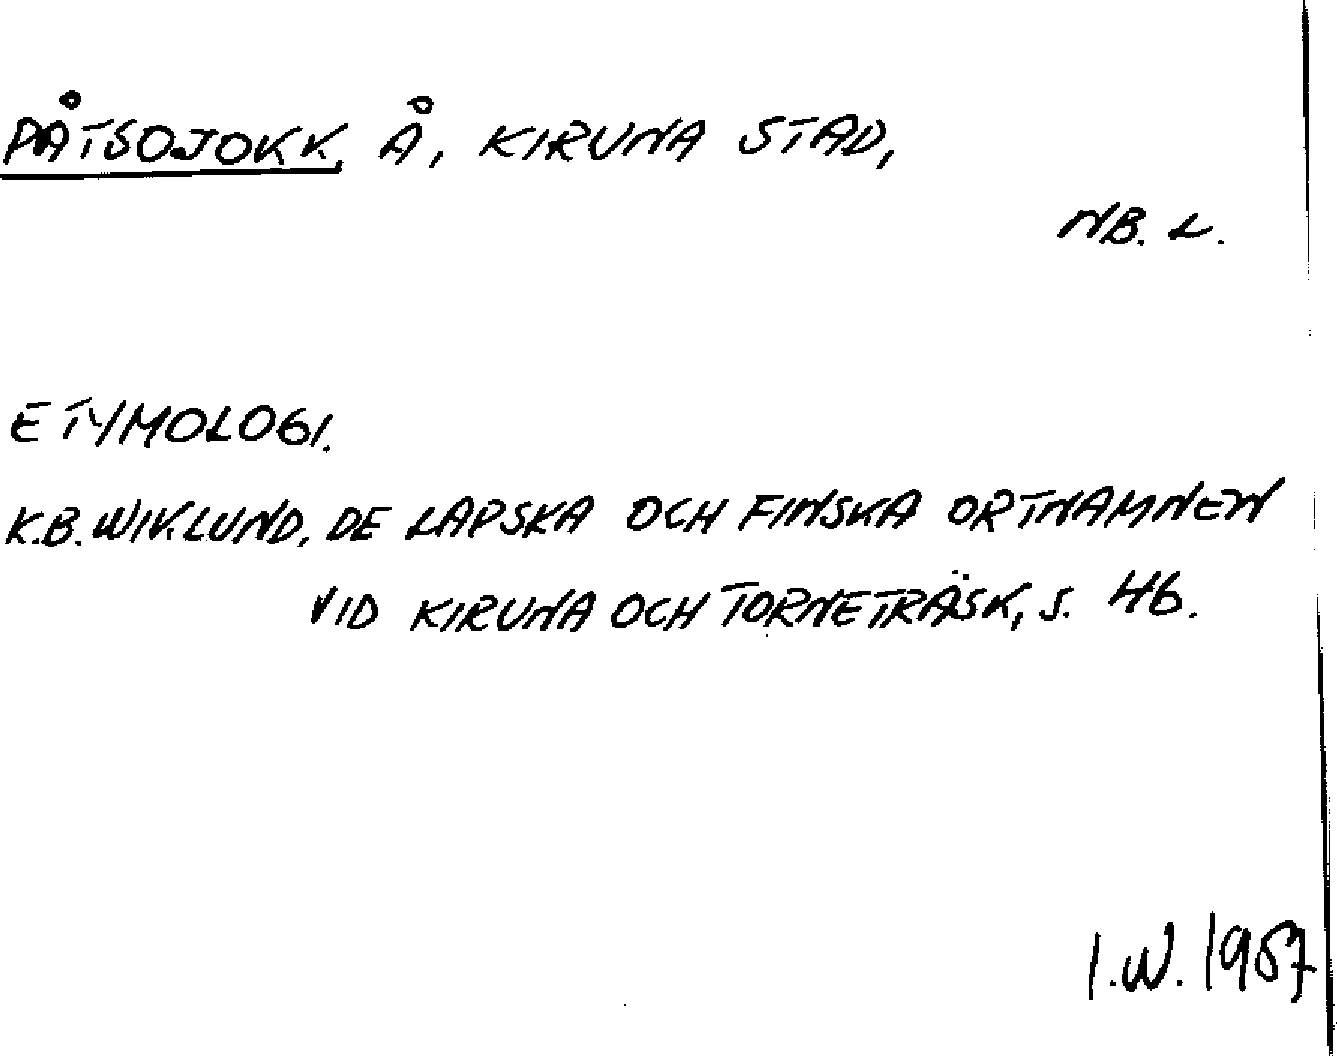 PÅTSOJOKK, Å, KIRUNA STAD,
NB. L.
ETYMOLOGI.
K.B. WIKLUND, DE LAPSKA OCH FINSKA ORTNAMNEN
VID KIRUNA OCH TORNETRÄSK, S. 46.
I.W. 1967